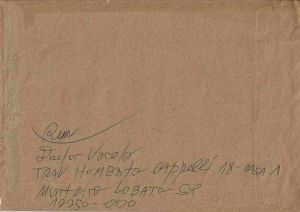 Dailor Varela
TRAV HUMBERTO CAPPELLI 18-CASA 1
Monteiro LOBATO SP
12250-000